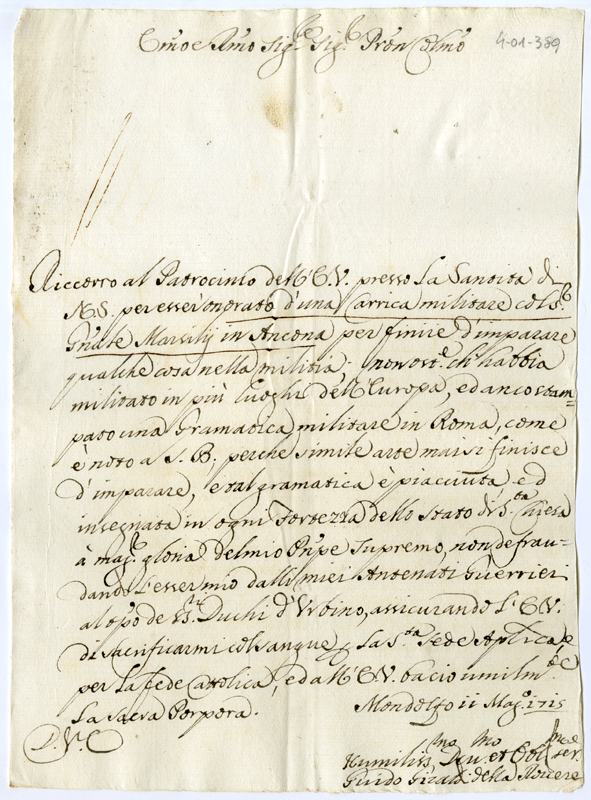 Em̃o e Rm̃o Sig.re Sig.r Prõn Colm̃o
4-01-389
Riccorro al Patrocinio dell'E.V. presso La Santità di
N.S. per esser onorato d'una Carrica militare col S.r
Gñale Marsilij in Ancona per finire d'imparare
qualche cosa nella militia; nonost.e ch'habbia
militato in più Luoghi dell'Europa, ed anco stam=
pato una Gramatica militare in Roma, come
è noto a S.B. perche simile arte mai si finisce
d'imparare, e tal gramatica è piacciuta ed
insegnata in ogni Fortezza dello Stato di S.ta Chiesa
à mag.r gloria del mio Pñpe Supremo, non defrau-
dando L'esser mio dalli miei Antenati Guerrieri
al tp̃o de SS.ri Duchi d'Urbino, assicurando L'E.V.
di sacrificarmi col sangue p La S.ta Sede Aplica, e
per La fede Cattolica, ed all'E.V. bacio umilm.te
La Sacra Porpora.
Mondolfo 11 Mag.o 1715
D.V.E
Humiliss.mo Dev.mo et Obl.mo Ser.
Guido Giraldi della Rovere